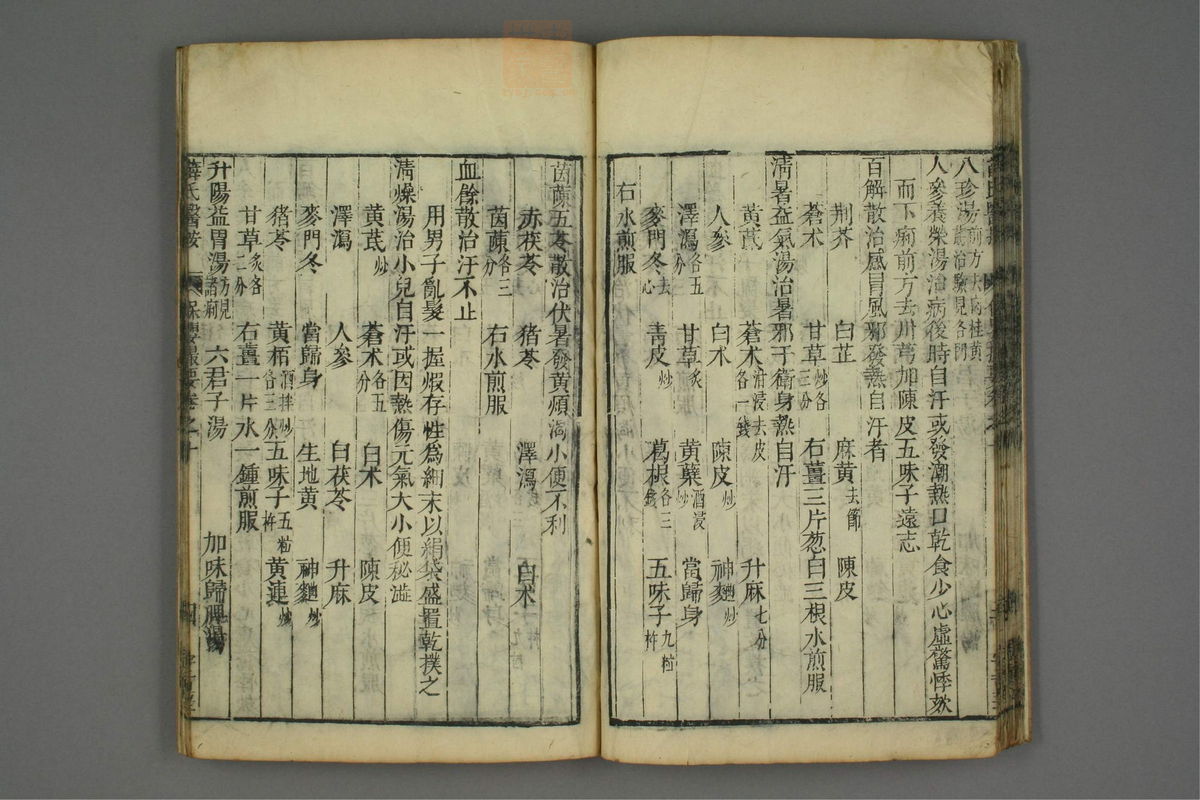 八珍湯前方去肉桂黃芪治驗見各門
人參養榮湯治病後時自汗或發潮熱口乾食少心虛驚悸欬
而下痢前方去川萬加陳皮五味子遠志
百解散治感冒風邪發熱自汗者
荊芥 白芷 麻黃去節 陳皮
蒼术 甘草炒各三分 右薑三片葱白三根水煎服
清暑益氣湯治暑邪干衛身熱自汗
黃芪 蒼术泔浸去皮各一錢 升麻七分
人參 白术 陳皮炒 神麯炒
澤瀉各五分 甘草炙 黃蘗酒浸炒 當歸身
麥門冬去心 靑皮炒 葛根各三錢 五味子九粒杵
右水煎服
茵蔯五苓散治伏暑發黃煩渴小便不利
赤茯苓 猪苓 澤瀉 白术
茵蔯各三分 右水煎服
血餘散治汗不止
用男子亂髮一握煆存性爲細末以絹袋盛置乾撲之
淸燥湯治小兒自汗或因熱傷元氣大小便秘澁
黃芪炒 蒼术各五分 白术 陳皮
澤瀉 人參 白茯苓 升麻
麥門冬 當歸身 生地黃 神麯炒
猪苓 黃栢酒拌炒各三分 五味子五粒杵 黃連炒
甘草炙各二分 右薑一片水一鍾煎服
升陽益胃湯方見諸痢 六君子湯 加味歸脾湯
薛氏醫按 保嬰撮要卷之十